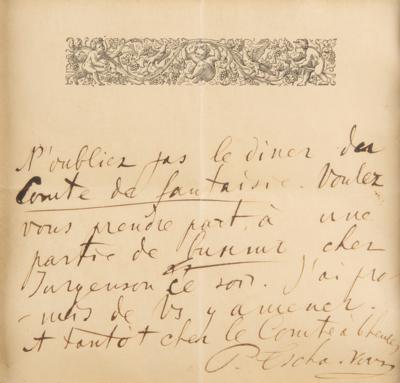 N'oubliez pas le diner du
Comte de fantaisie. Voulez
vous prendre part à une
partie de chez
Jurgenson ce soir. J'ai pro
-mis de Vs y amener.
A tantôt chez le Comte à
P.